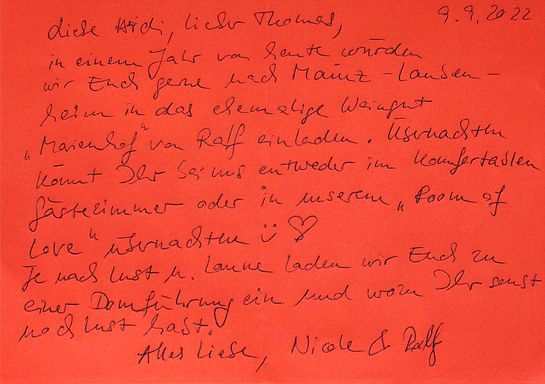 9.9.2022
liebe Heidi, lieber Thomas,
in einem Jahr von heute würden
wir Euch gerne nach Mainz-Lauben-
heim in das ehemalige Weingut
„Marienhof" von Ralf einladen. Übernachten
könnt Ihr bei uns entweder im komfortablen
Gästezimmer oder in unserem „Room of
Love" übernachten ü ♡
Je nach Lust u. Laune laden wir Euch zu
einer Domführung ein und worn Ihr sonst
noch Lust habt.
Alles Liebe, Nicole & Ralf